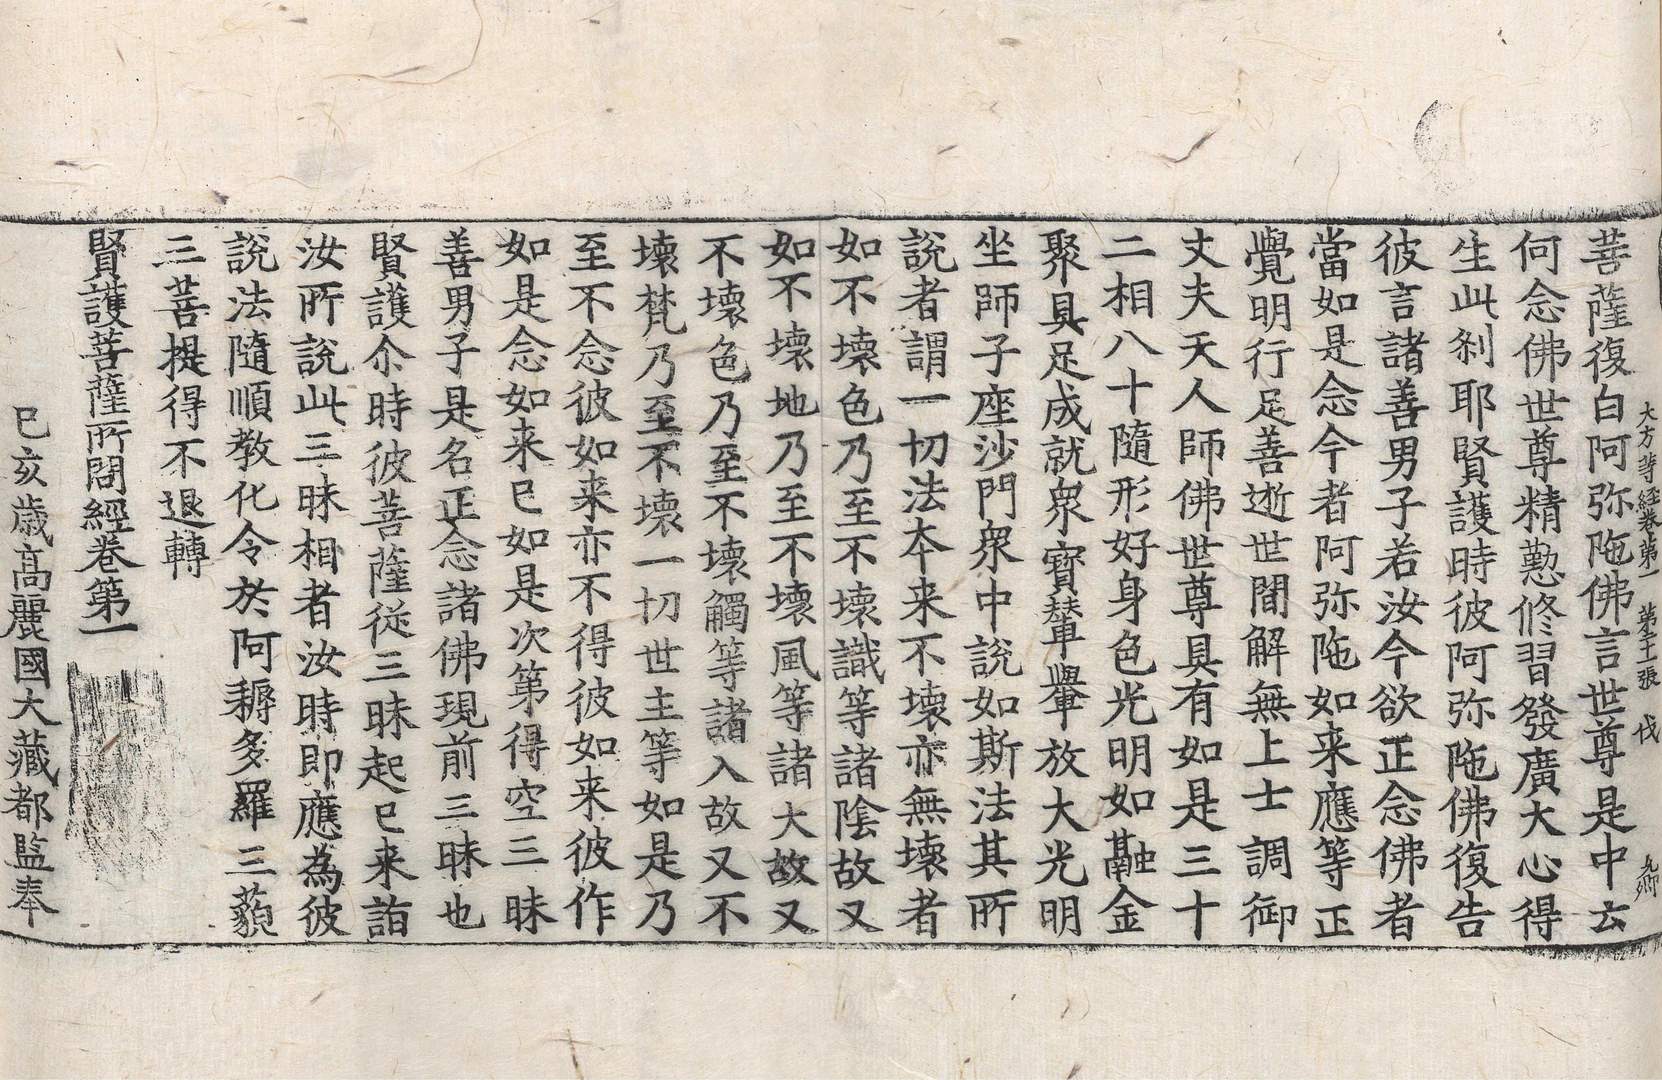 大方等經卷第一 第二十一張 伐
菩薩復白阿弥陁佛言世尊是中云
何念佛世尊精懃修習發廣大心得
生此刹耶賢護時彼阿弥陁佛復告
彼言諸善男子若汝今欲正念佛者
當如是念今者阿弥陁如来應等正
覺明行足善逝世間解無上士調御
丈夫天人師佛世尊具有如是三十
二相八十隨形好身色光明如融金
聚具足成就衆寶輦轝放大光明
坐師子座沙門衆中說如斯法其所
說者謂一切法夲来不壞亦無壞者
如不壞色乃至不壞識等諸陰故又
如不壞地乃至不壞風等諸大故又
不壞色乃至不壞觸等諸入故又不
壞梵乃至不壞一切世主等如是乃
至不念彼如来亦不得彼如来彼作
如是念如来已如是次第得空三昧
善男子是名正念諸佛現前三昧也
賢護尒時彼菩薩從三昧起已来詣
汝所說此三昧相者汝時即應為彼
說法隨順教化令於阿耨多羅三藐
三菩提得不退轉
賢護菩薩所問經卷第一
己亥歲高麗國大藏都監奉